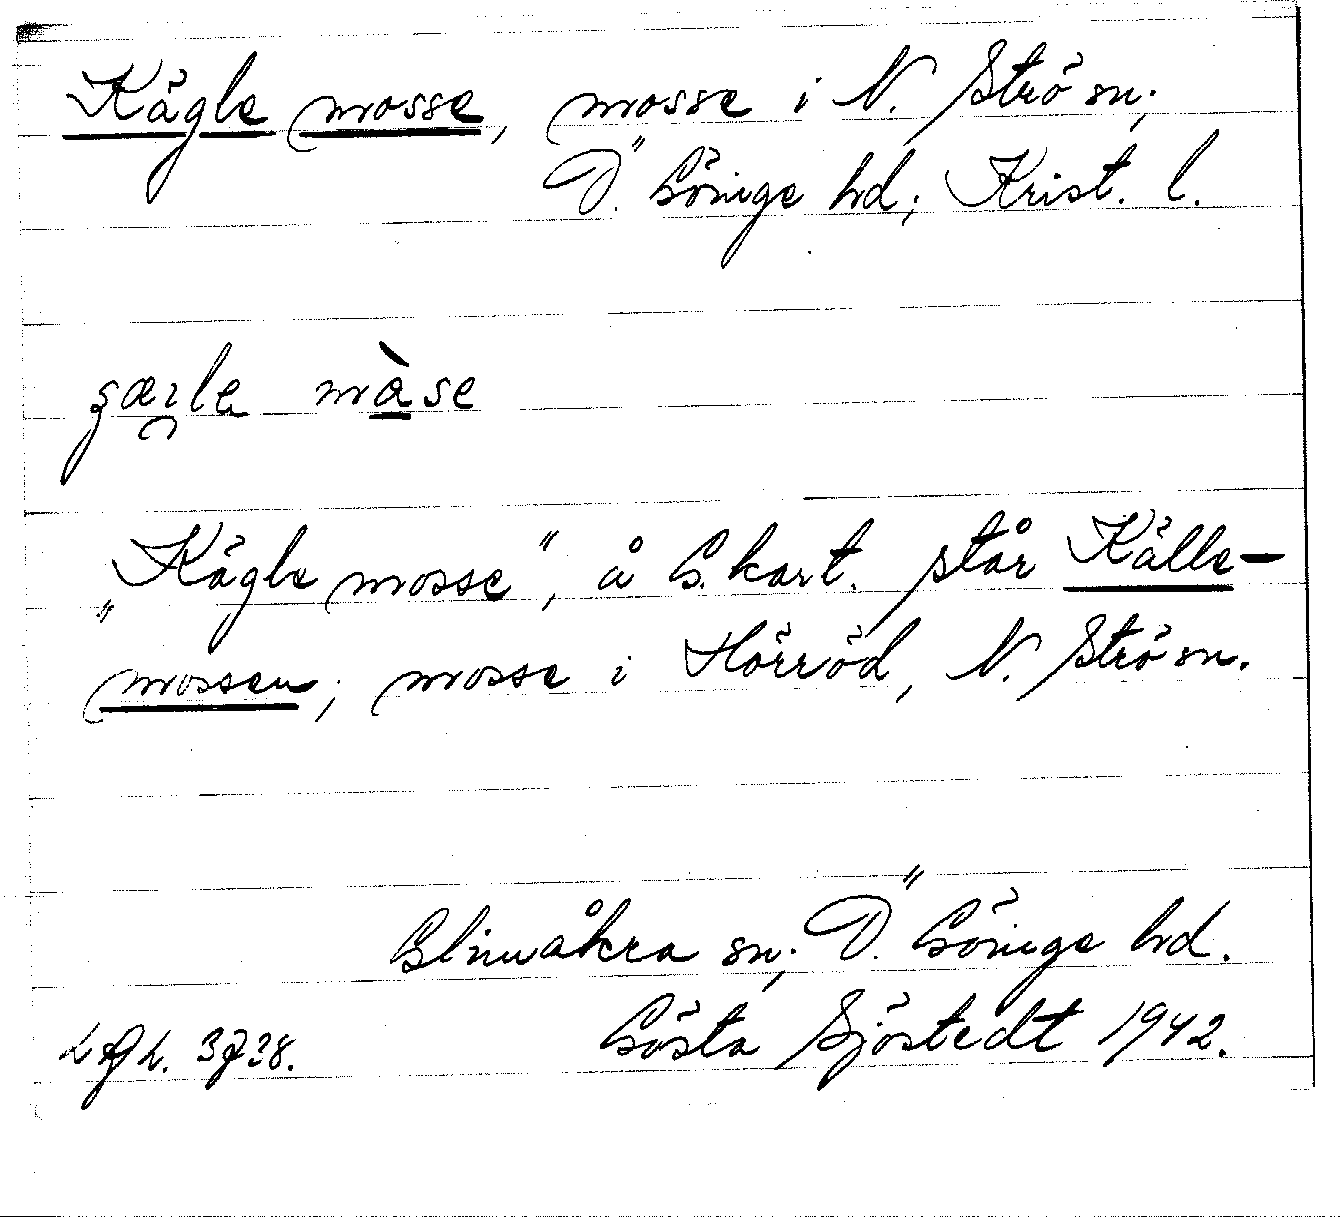 Kägle mosse, mosse i N. Strö sn;
Ö. Göinge hd; Krist. l.
màse
„Kägle mosse”, å G. kart. står Källe-
mossen; mosse i Hörröd, N. Strö sn.
Glimåkra sn; Ö. Göinge hd.
Gösta Sjöstedt 1942.